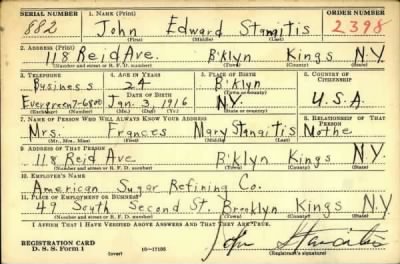 SERIAL NUMBER 1. NAME (Print) ORDER NUMBER
882 John Edward Stanaitis 2398
(First) (Middle) (Last)
2. ADDRESS (Print)
118 Reid Ave. B'klyn Kings N.Y.
(Number and street or R. F. D. number) (Town) (County) (State)
3. TELEPHONE 4. AGE IN YEARS 5. PLACE OF BIRTH 6. COUNTRY OF CITIZENSHIP
Business 24 B'klyn
DATE OF BIRTH (Town or county)
Evergreen 7-6800 Jan. 3, 1916 N.Y. U.S.A.
(Exchange) (Number) (Mo.) (Day) (Yr.) (State or country)
7. NAME OF PERSON WHO WILL ALWAYS KNOW YOUR ADDRESS 8. RELATIONSHIP OF THAT PERSON
Mrs. Frances Mary Stanaitis Mothe
(Mr., Mrs., Miss) (First) (Middle) (Last)
9. ADDRESS OF THAT PERSON
118 Reid Ave B'klyn Kings N.Y.
(Number and street or R. F. D. number) (Town) (County) (State)
10. EMPLOYER'S NAME
American Sugar Refining Co.
11. PLACE OF EMPLOYMENT OR BUSINESS
49 South Second St. Brooklyn Kings N.Y.
(Number and street or R. F. D. number) (Town) (County) (State)
I AFFIRM THAT I HAVE VERIFIED ABOVE ANSWERS AND THAT THEY ARE TRUE.
REGISTRATION CARD John Stanaitis
D. S. S. Form 1 (over) 16—17105 (Registrant's signature)